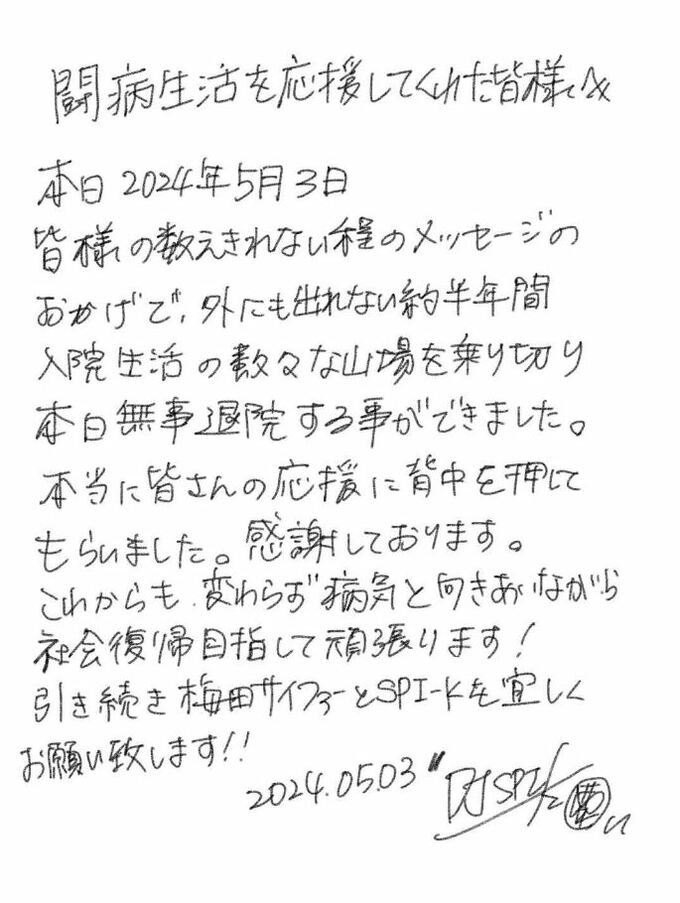 闘病生活を応援してくれた皆様へ
本日 2024年5月3日
皆様の数えきれない程のメッセージの
おかげで、外にも出れない約半年間
入院生活の数々な山場を乗り切り
本日無事退院する事ができました。
本当に皆さんの応援に背中を押して
もらいました。感謝しております。
これからも、変わらず病気と向きあいながら
社会復帰目指して頑張ります!
引き続き梅田サイファーとSPI-Kを宜しく
お願い致します!!
2024.05.03 DJ SPI-K